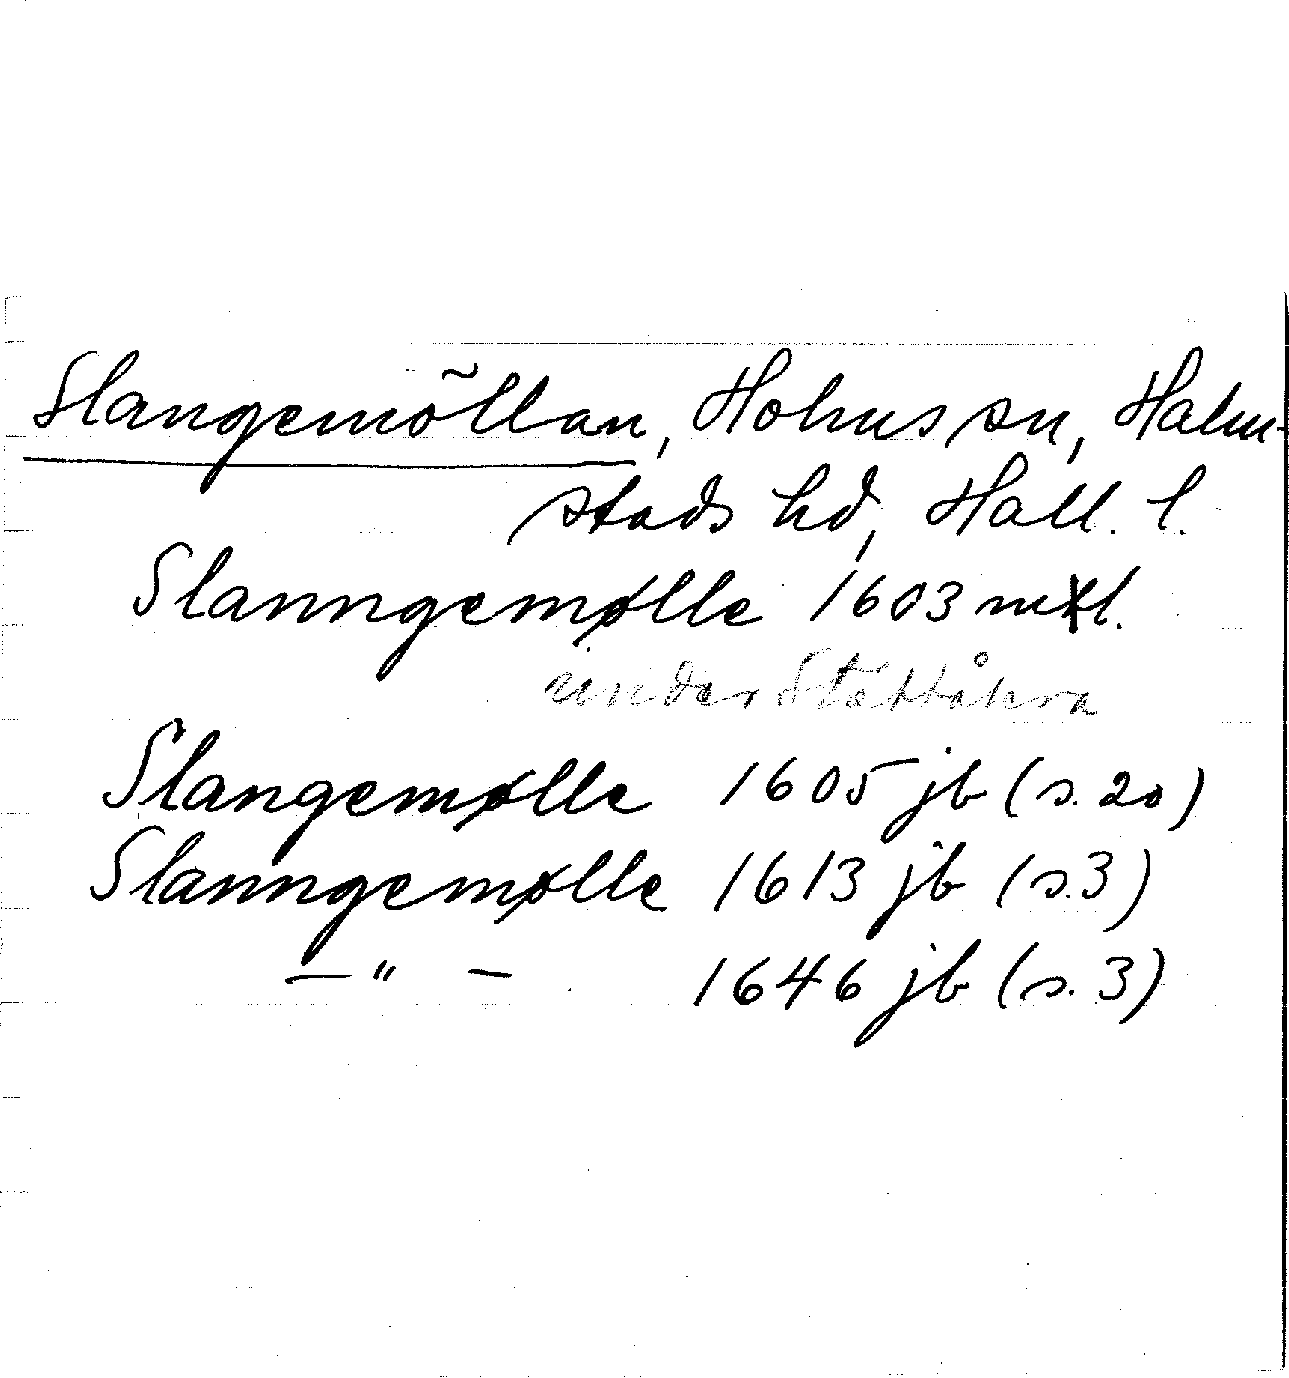 Slangemöllan, Holms sn, Halm-
stads hd, Hall. l.
Slanngemølle 1603 mtl.
under Stættåkra
Slangemølle 1605 jb (s. 20)
Slanngemølle 1613 jb (s. 3)
— " — 1646 jb (s. 3)